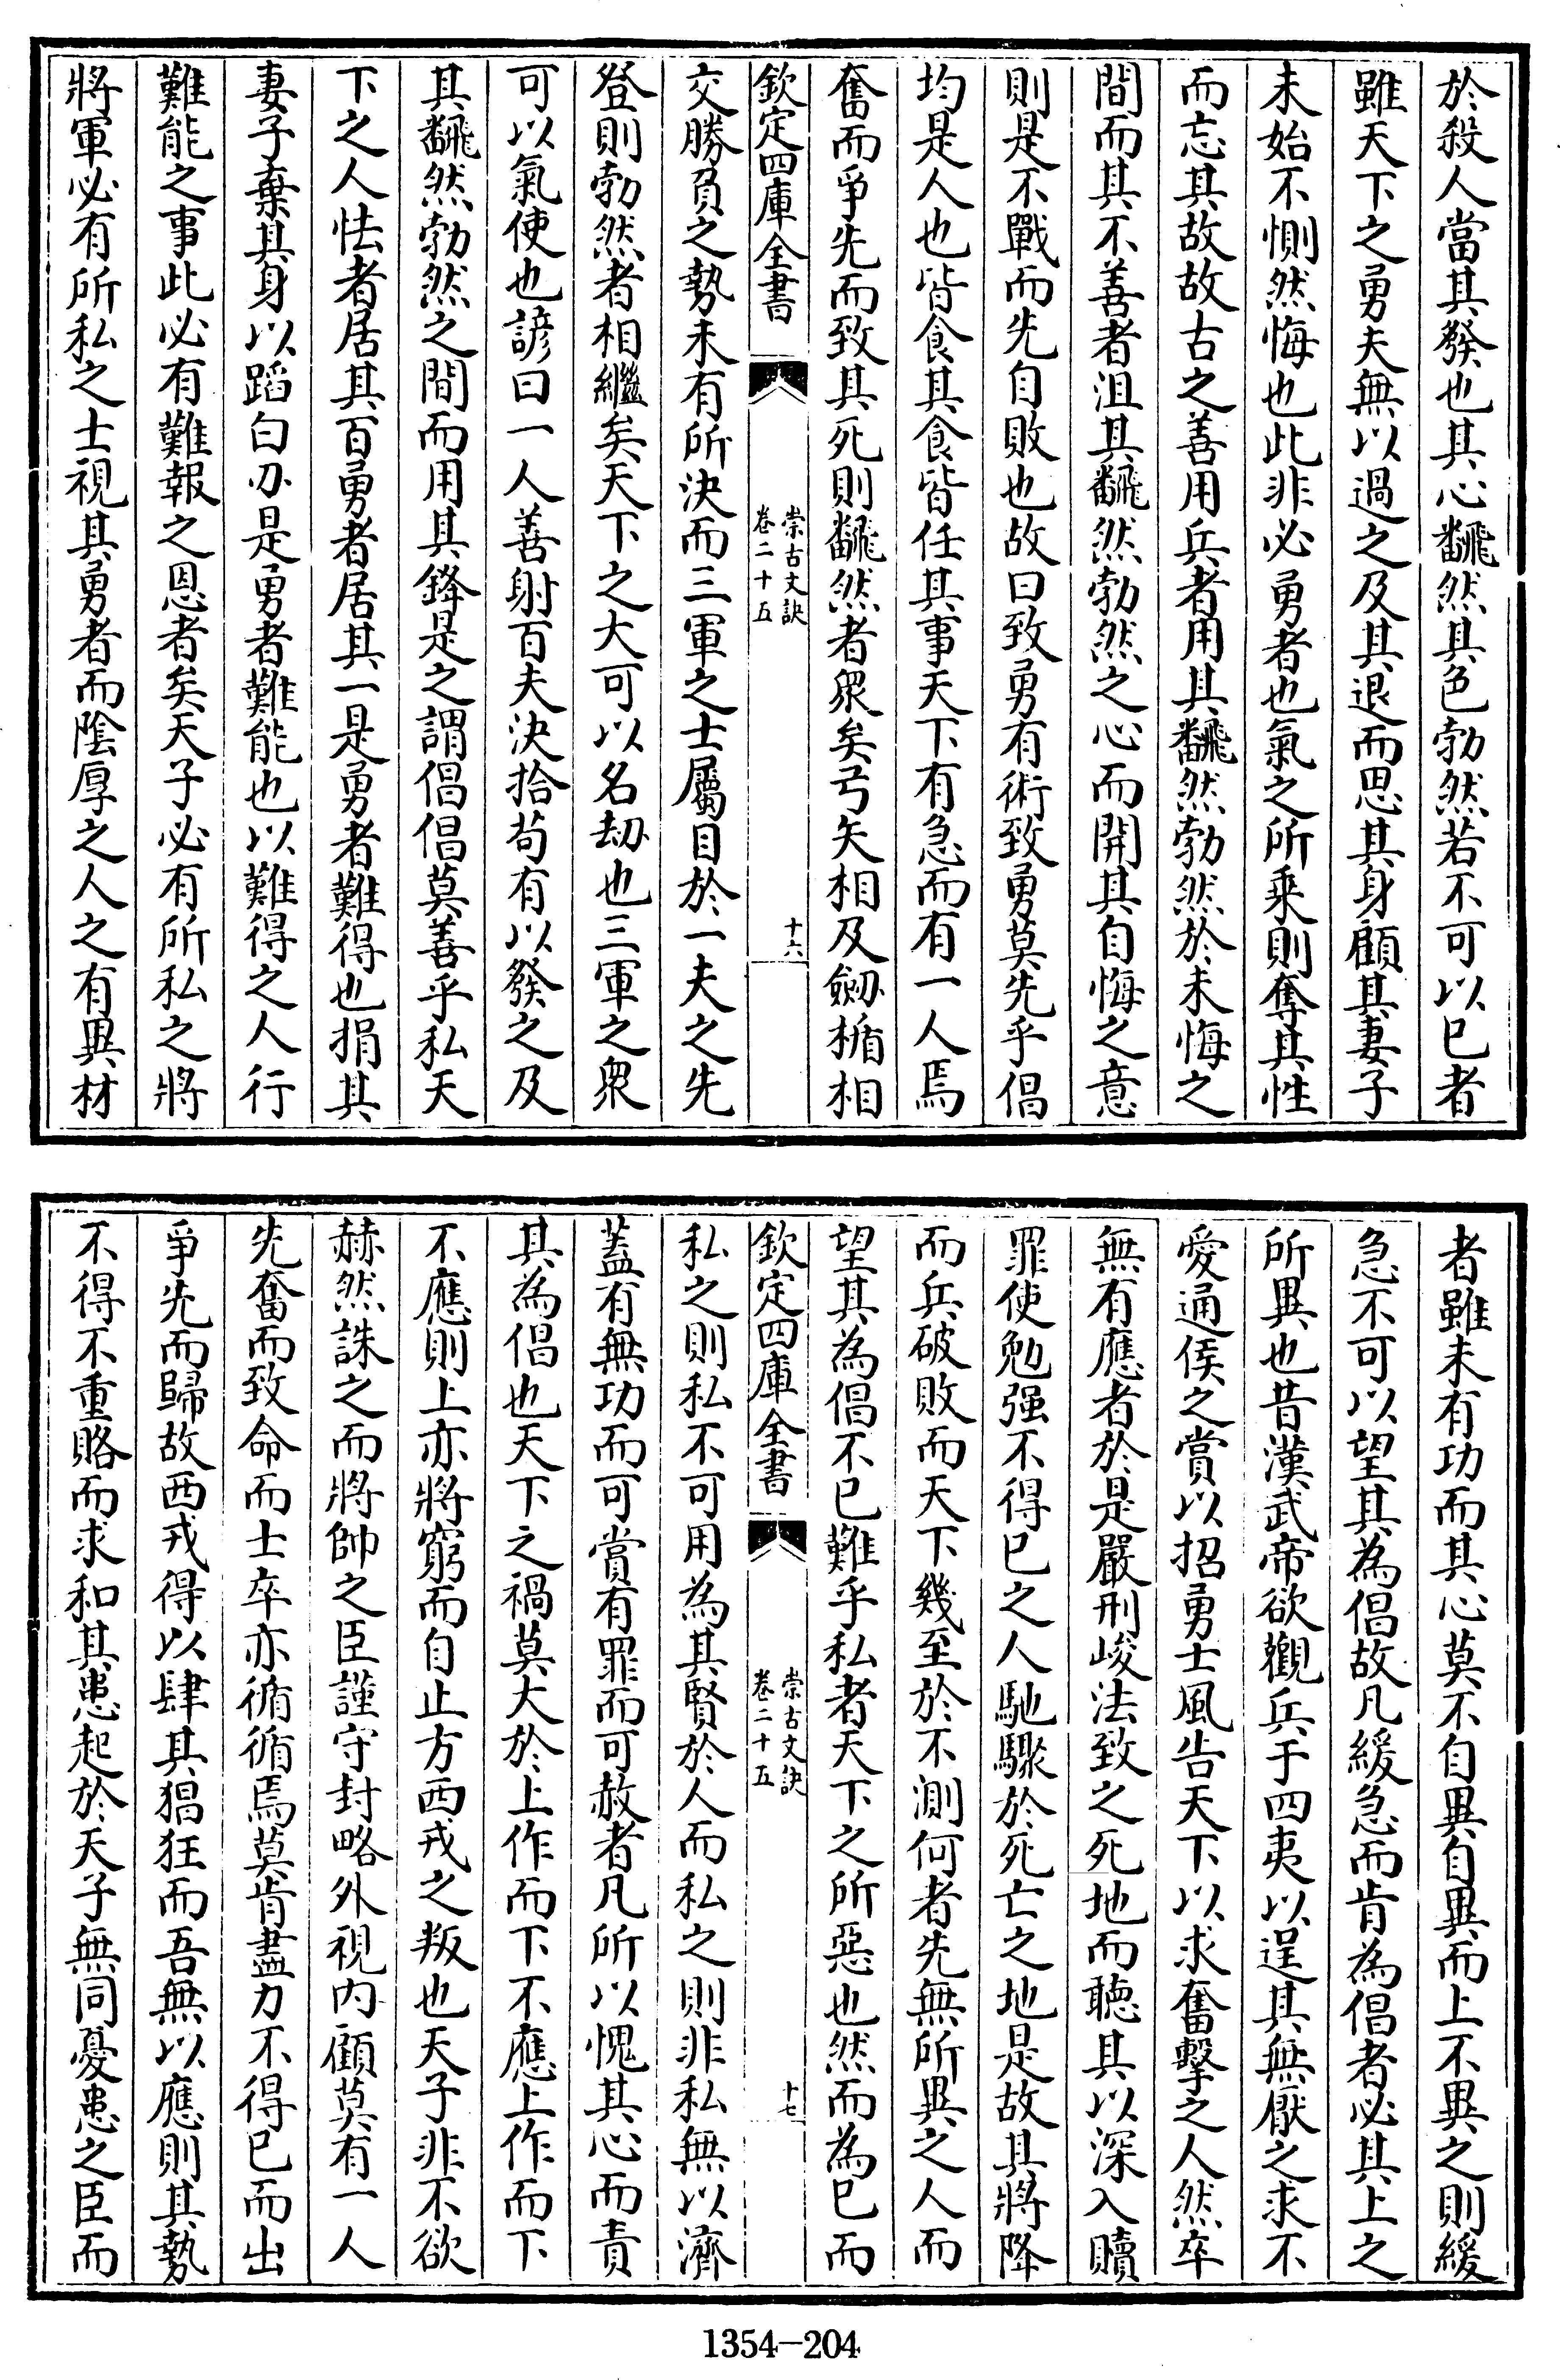 於殺人當其發也其心飜然其色勃然若不可以已者
雖天下之勇夫無以過之及其退而思其身顧其妻子
未始不惻然悔也此非必勇者也氣之所乘則奪其性
而忘其故故古之善用兵者用其飜然勃然於未悔之
間而其不善者沮其飜然勃然之心而開其自悔之意
則是不戰而先自敗也故曰致勇有術致勇莫先乎倡
均是人也皆食其食皆任其事天下有急而有一人焉
奮而爭先而致其死則飜然者衆矣弓矢相及劔楯相
欽定四庫全書
崇古文訣
卷二十五
十六
交勝負之勢未有所決而三軍之士屬目於一夫之先
登則勃然者相繼矣天下之大可以名刼也三軍之衆
可以氣使也諺曰一人善射百夫決拾苟有以發之及
其飜然勃然之間而用其鋒是之謂倡倡莫善乎私天
下之人怯者居其百勇者居其一是勇者難得也捐其
妻子棄其身以蹈白刃是勇者難能也以難得之人行
難能之事此必有難報之恩者矣天子必有所私之將
將軍必有所私之士視其勇者而陰厚之人之有異材
者雖未有功而其心莫不自異自異而上不異之則緩
急不可以望其為倡故凡緩急而肯為倡者必其上之
所異也昔漢武帝欲觀兵于四夷以逞其無厭之求不
愛通侯之賞以招勇士風告天下以求奮擊之人然卒
無有應者於是嚴刑峻法致之死地而聽其以深入贖
罪使勉强不得已之人馳驟於死亡之地是故其將降
而兵破敗而天下幾至於不測何者先無所異之人而
望其為倡不已難乎私者天下之所惡也然而為已而
欽定四庫全書
崇古文訣
卷二十五
十七
私之則私不可用為其賢於人而私之則非私無以濟
蓋有無功而可賞有罪而可赦者凡所以愧其心而責
其為倡也天下之禍莫大於上作而下不應上作而下
不應則上亦將窮而自止方西戎之叛也天子非不欲
赫然誅之而將帥之臣謹守封略外視内顧莫有一人
先奮而致命而士卒亦循循焉莫肯盡力不得已而出
爭先而歸故西戎得以肆其猖狂而吾無以應則其勢
不得不重賂而求和其患起於天子無同憂患之臣而
1354-204